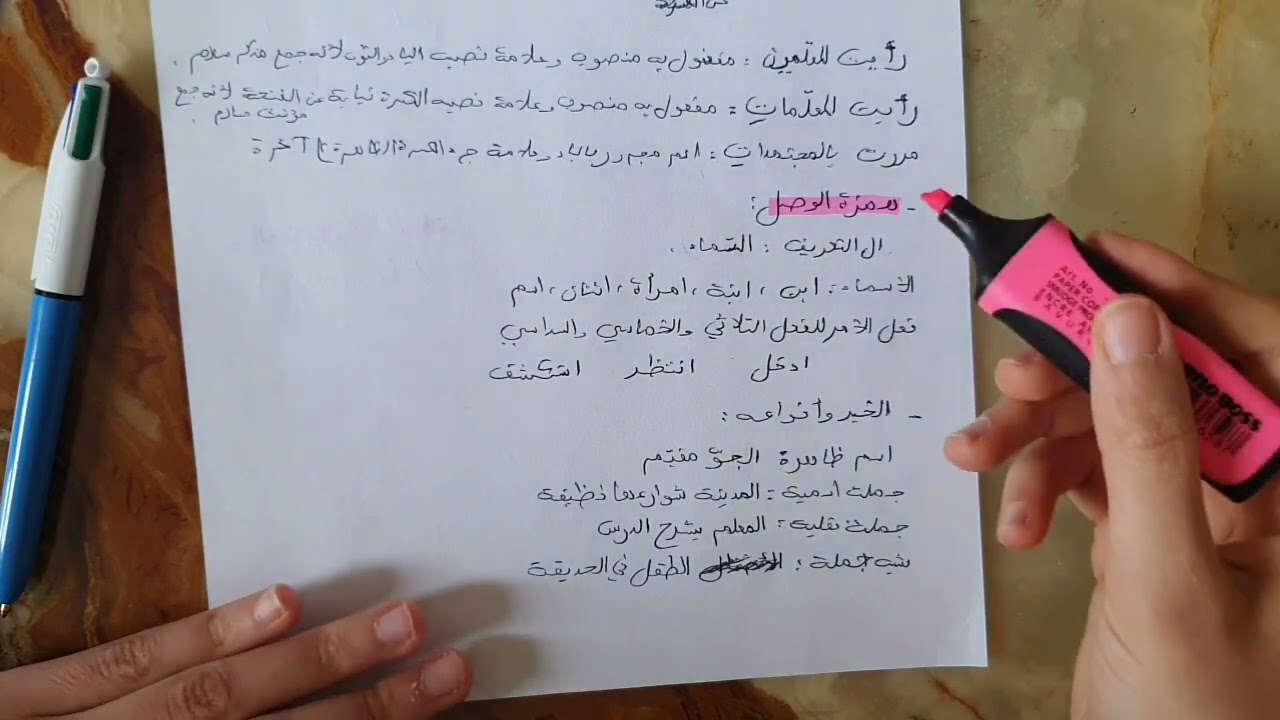 عن الكسرة
رأيت المعلّمين : مفعول به منصوب وعلامة نصبه الياء والنون لأنه جمع مذكر سالم .
رأيت المعلّمات : مفعول به منصوب وعلامة نصبه الكسرة نيابة عن الفتحة لأنه جمع
مؤنث سالم .
مررت بالمجتهدات : اسم مجرور بالباء وعلامة جره الكسرة الظاهرة آخرة
- همزة الوصل :
ال التعريف : السّماء .
الأسماء : ابن ، ابنة ، امرأة ، اثنان ، اسم
فعل الأمر للفعل الثلاثي والخماسي والسداسي
ادخل انتظر استكشف
- الخبر وأنواعه :
اسم ظاهرة الجوّ مغيّم
جملة اسمية : المدينة شوارعها نظيفة
جملة فعلية : المعلم يشرح الدرس
شبه جملة : الطفل في الحديقة
Art. No.
PAPER COP
BOSS